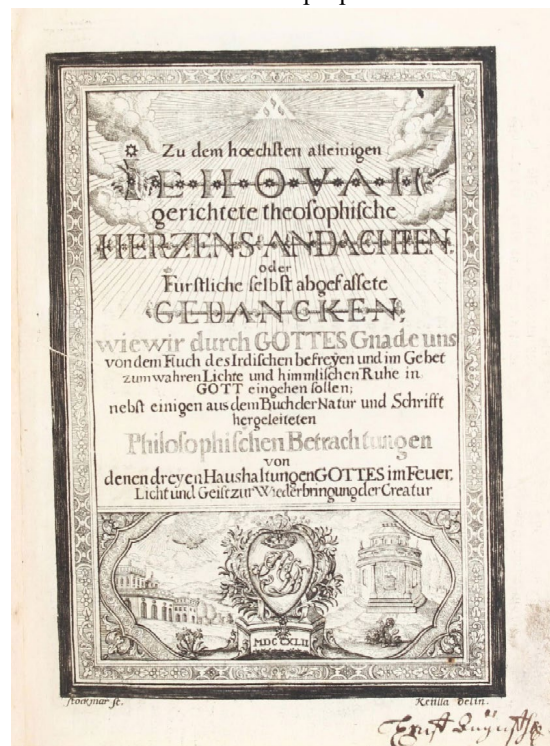 Zu dem hoechsten alleinigen
IEHOVAH
gerichtete theosophische
HERZENS-ANDACHTEN.
oder
Furstliche selbst abgefassete
GEDANCKEN,
wie wir durch GOTTES Gnade uns
von dem Fluch des Irdischen befreyen und im Gebet
zum wahren Lichte und himmlischen Ruhe in
GOTT eingehen sollen;
nebst einigen aus dem Buch der Natur und Schrifft
hergeleiteten
Philosophischen Betrachtungen
von
denen dreyen Haushaltungen GOTTES im Feuer,
Licht und Geist zur Wiederbringung der Creatur
MDCCXLII
stockmar sc. Keilla delin.
Ernst